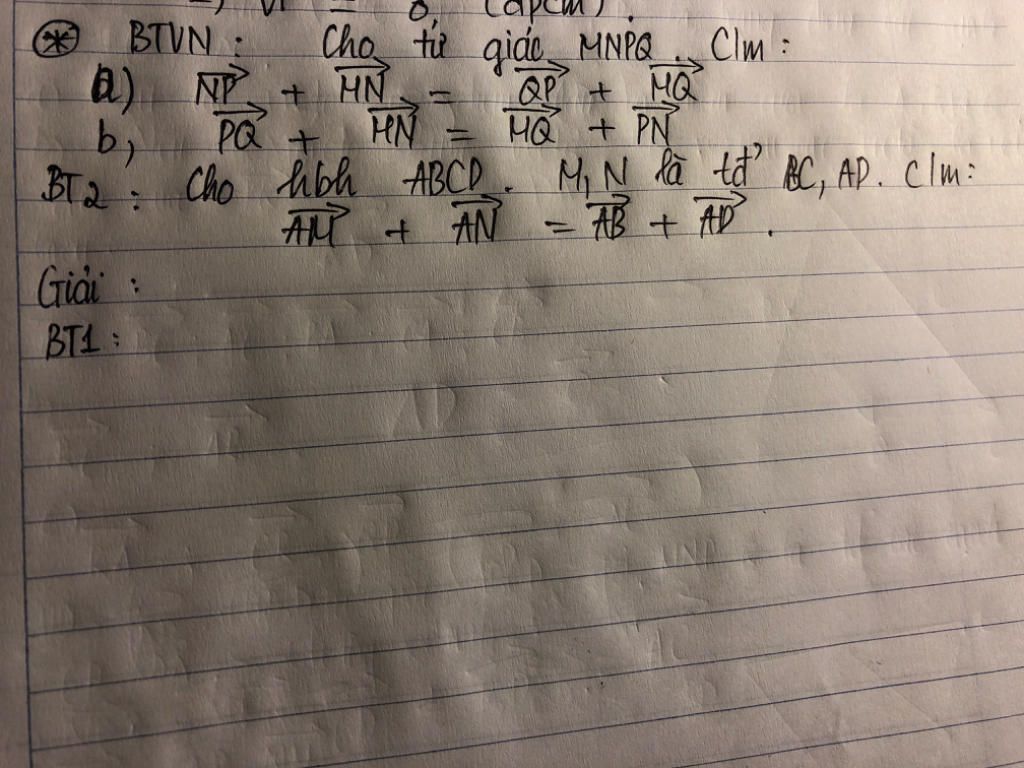 (đpcm).
⊛ BTVN : Cho tứ giác MNPQ. C/m :
a) NP + MN = QP + MQ
b, PQ + MN = MQ + PN
BT2 : Cho hbh ABCD. M, N là tđ' BC, AD. C/m:
AM + AN = AB + AD .
Giải :
BT1 :